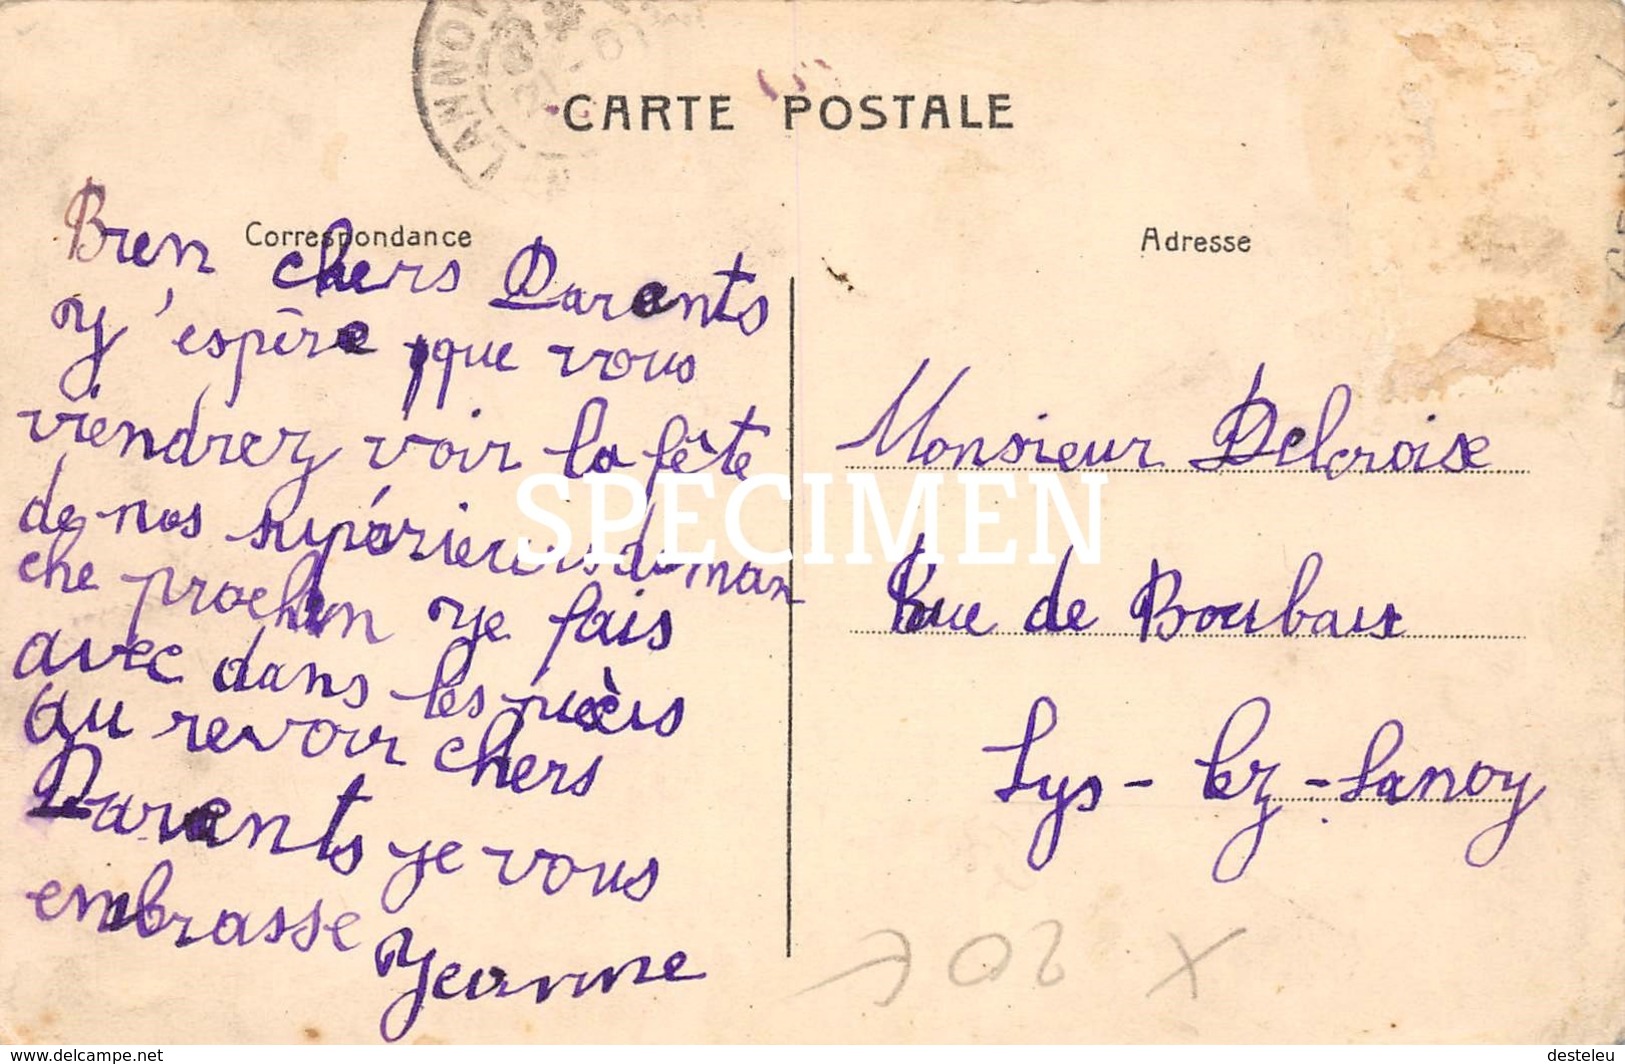 LANNOY
CARTE POSTALE
Correspondance
Adresse
Bien chers Parents
J'espère que vous
viendrez voir la fête
de nos supérieurs diman
che prochin je fais
avec dans les pièces
au revoir chers
Parents je vous
embrasse Jeanne
Monsieur Delcroix
Rue de Roubaix
Lys-lez-Lanoy
SPECIMEN
www.delcampe.net
desteleu